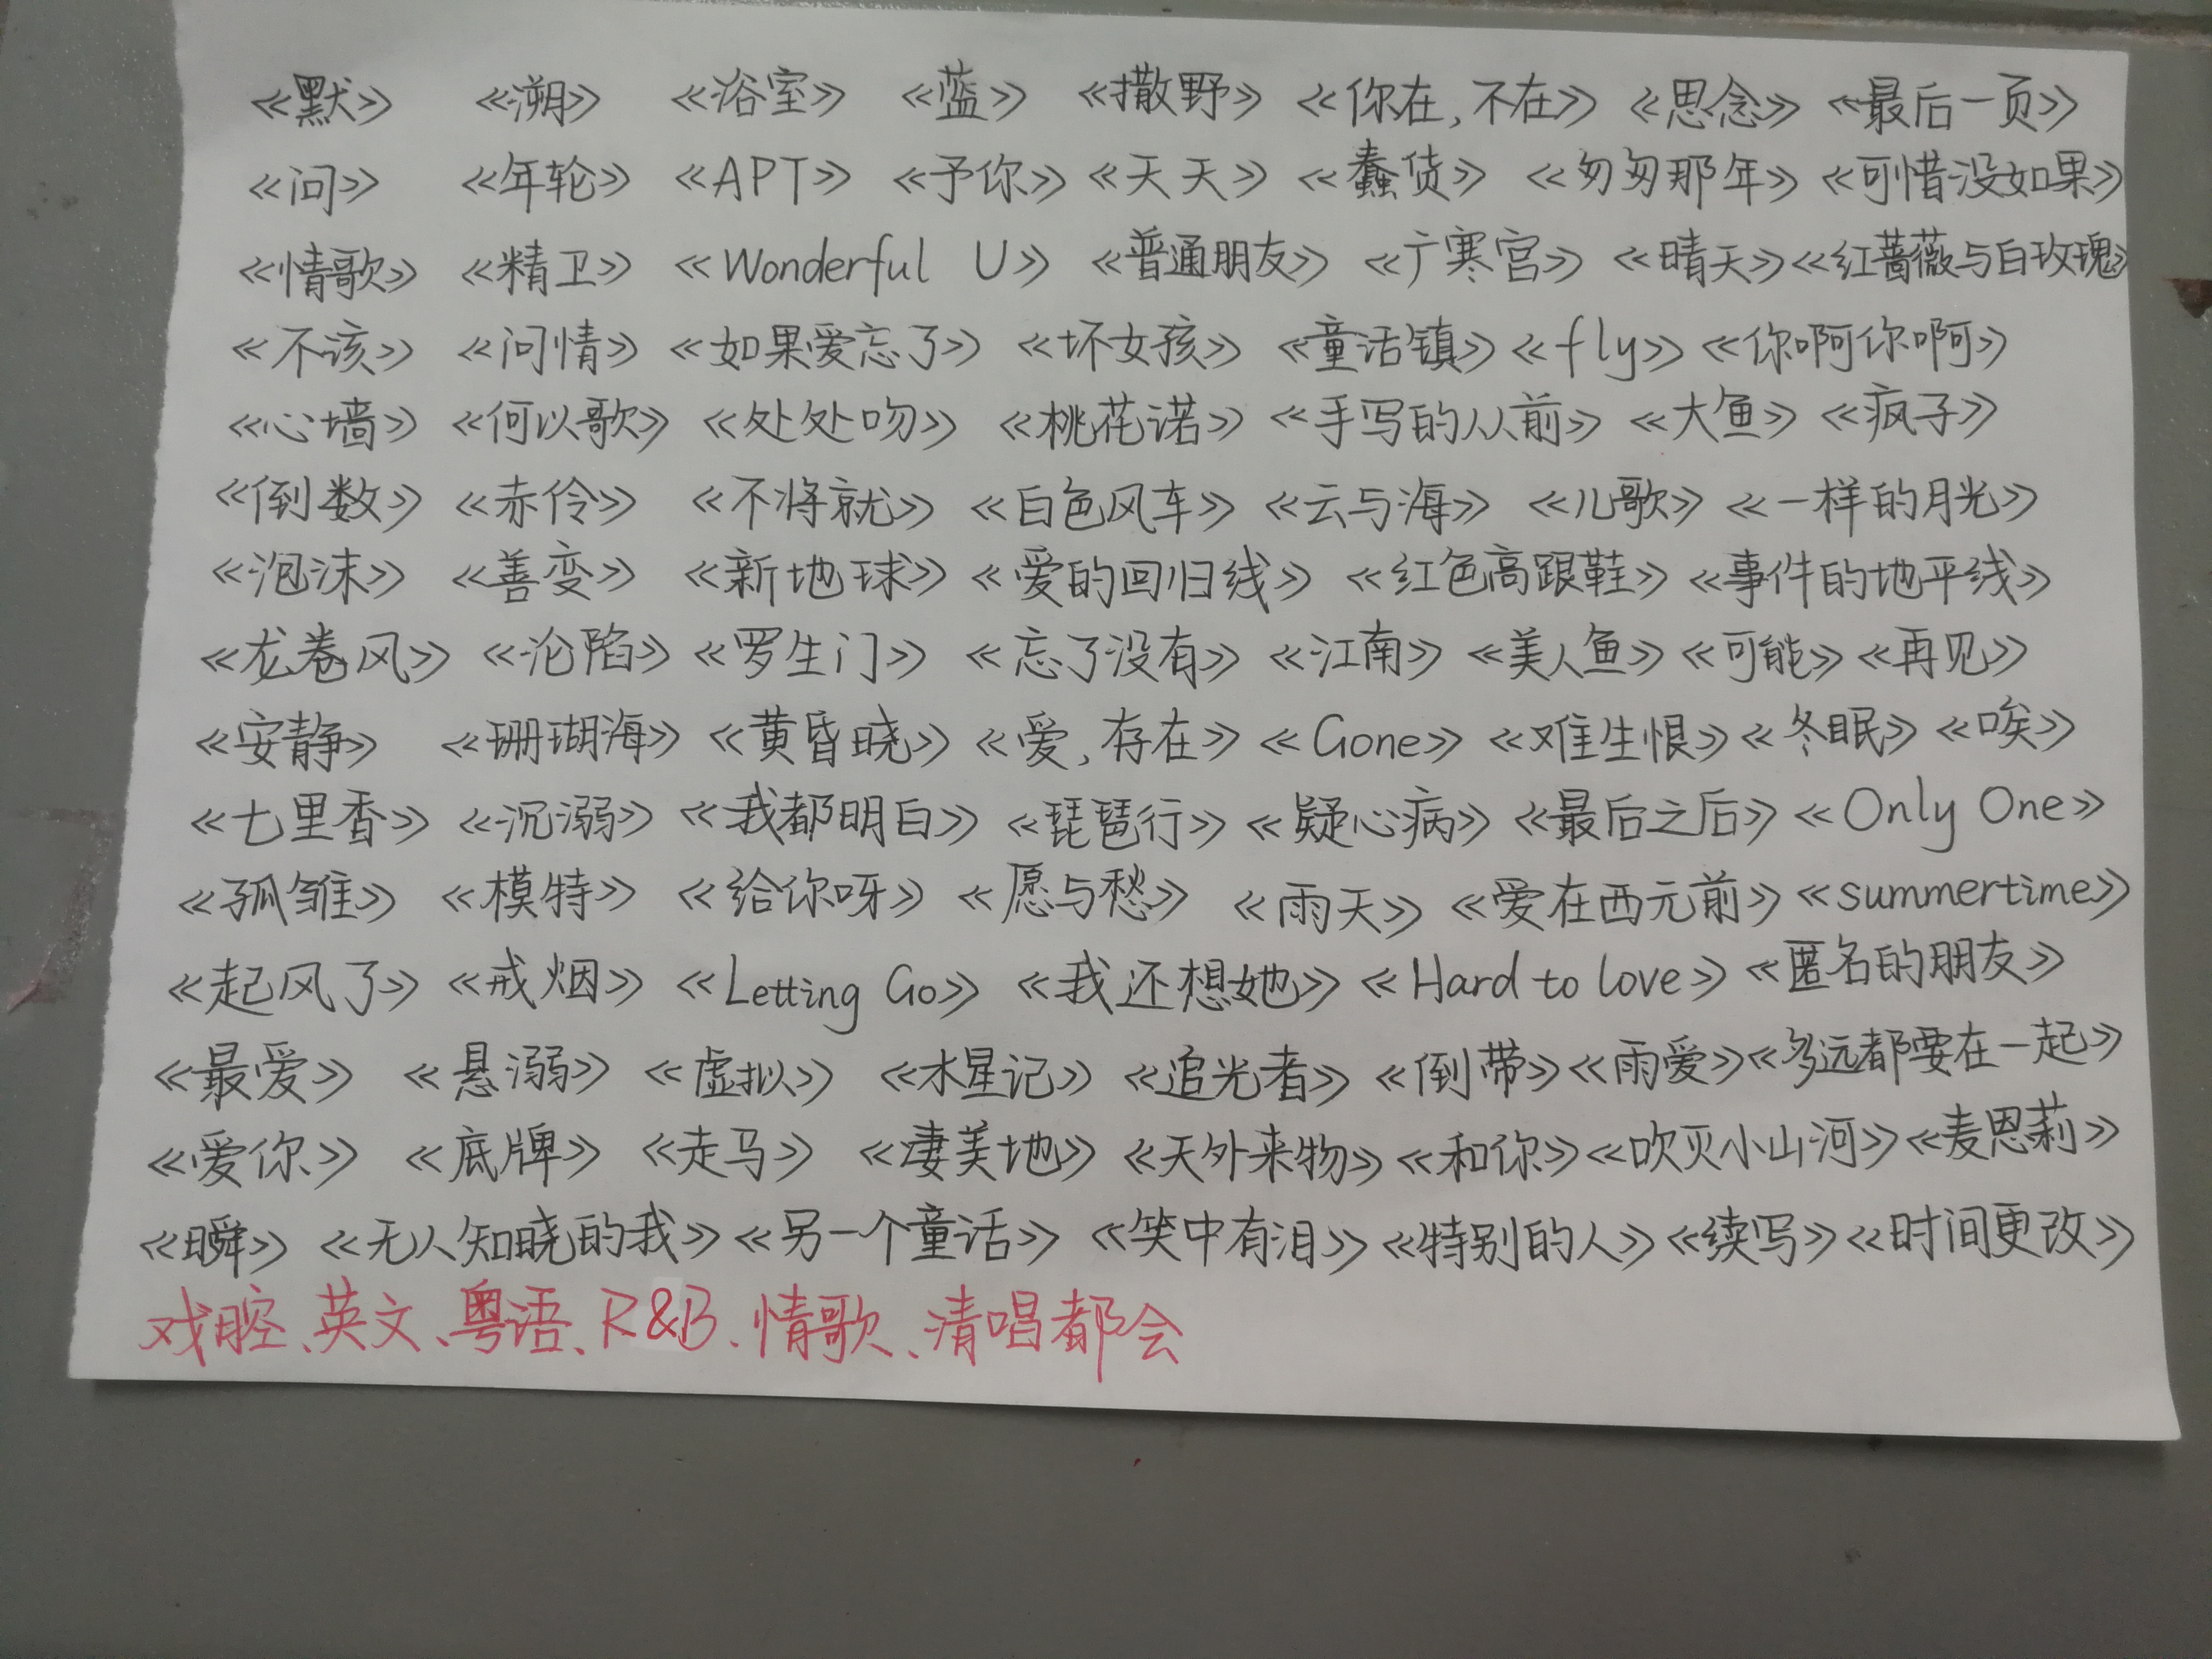 《默》 《溯》 《浴室》 《蓝》 《撒野》 《你在,不在》 《思念》 《最后一页》
《问》 《年轮》 《APT》 《予你》 《天天》 《蠢货》 《匆匆那年》 《可惜没如果》
《情歌》 《精卫》 《Wonderful U》 《普通朋友》 《广寒宫》 《晴天》 《红蔷薇与白玫瑰》
《不该》 《问情》 《如果爱忘了》 《坏女孩》 《童话镇》 《fly》 《你啊你啊》
《心墙》 《何以歌》 《处处吻》 《桃花诺》 《手写的从前》 《大鱼》 《疯子》
《倒数》 《赤伶》 《不将就》 《白色风车》 《云与海》 《儿歌》 《一样的月光》
《泡沫》 《善变》 《新地球》 《爱的回归线》 《红色高跟鞋》 《事件的地平线》
《龙卷风》 《沦陷》 《罗生门》 《忘了没有》 《江南》 《美人鱼》 《可能》 《再见》
《安静》 《珊瑚海》 《黄昏晓》 《爱,存在》 《Gone》 《难生恨》 《冬眠》 《唉》
《七里香》 《沉溺》 《我都明白》 《琵琶行》 《疑心病》 《最后之后》 《Only One》
《孤雏》 《模特》 《给你呀》 《愿与愁》 《雨天》 《爱在西元前》 《summertime》
《起风了》 《戒烟》 《Letting Go》 《我还想她》 《Hard to love》 《匿名的朋友》
《最爱》 《悬溺》 《虚拟》 《水星记》 《追光者》 《倒带》 《雨爱》 《多远都要在一起》
《爱你》 《底牌》 《走马》 《凄美地》 《天外来物》 《和你》 《吹灭小山河》 《麦恩莉》
《瞬》 《无人知晓的我》 《另一个童话》 《笑中有泪》 《特别的人》 《续写》 《时间更改》
戏腔、英文、粤语、R&B、情歌、清唱都会